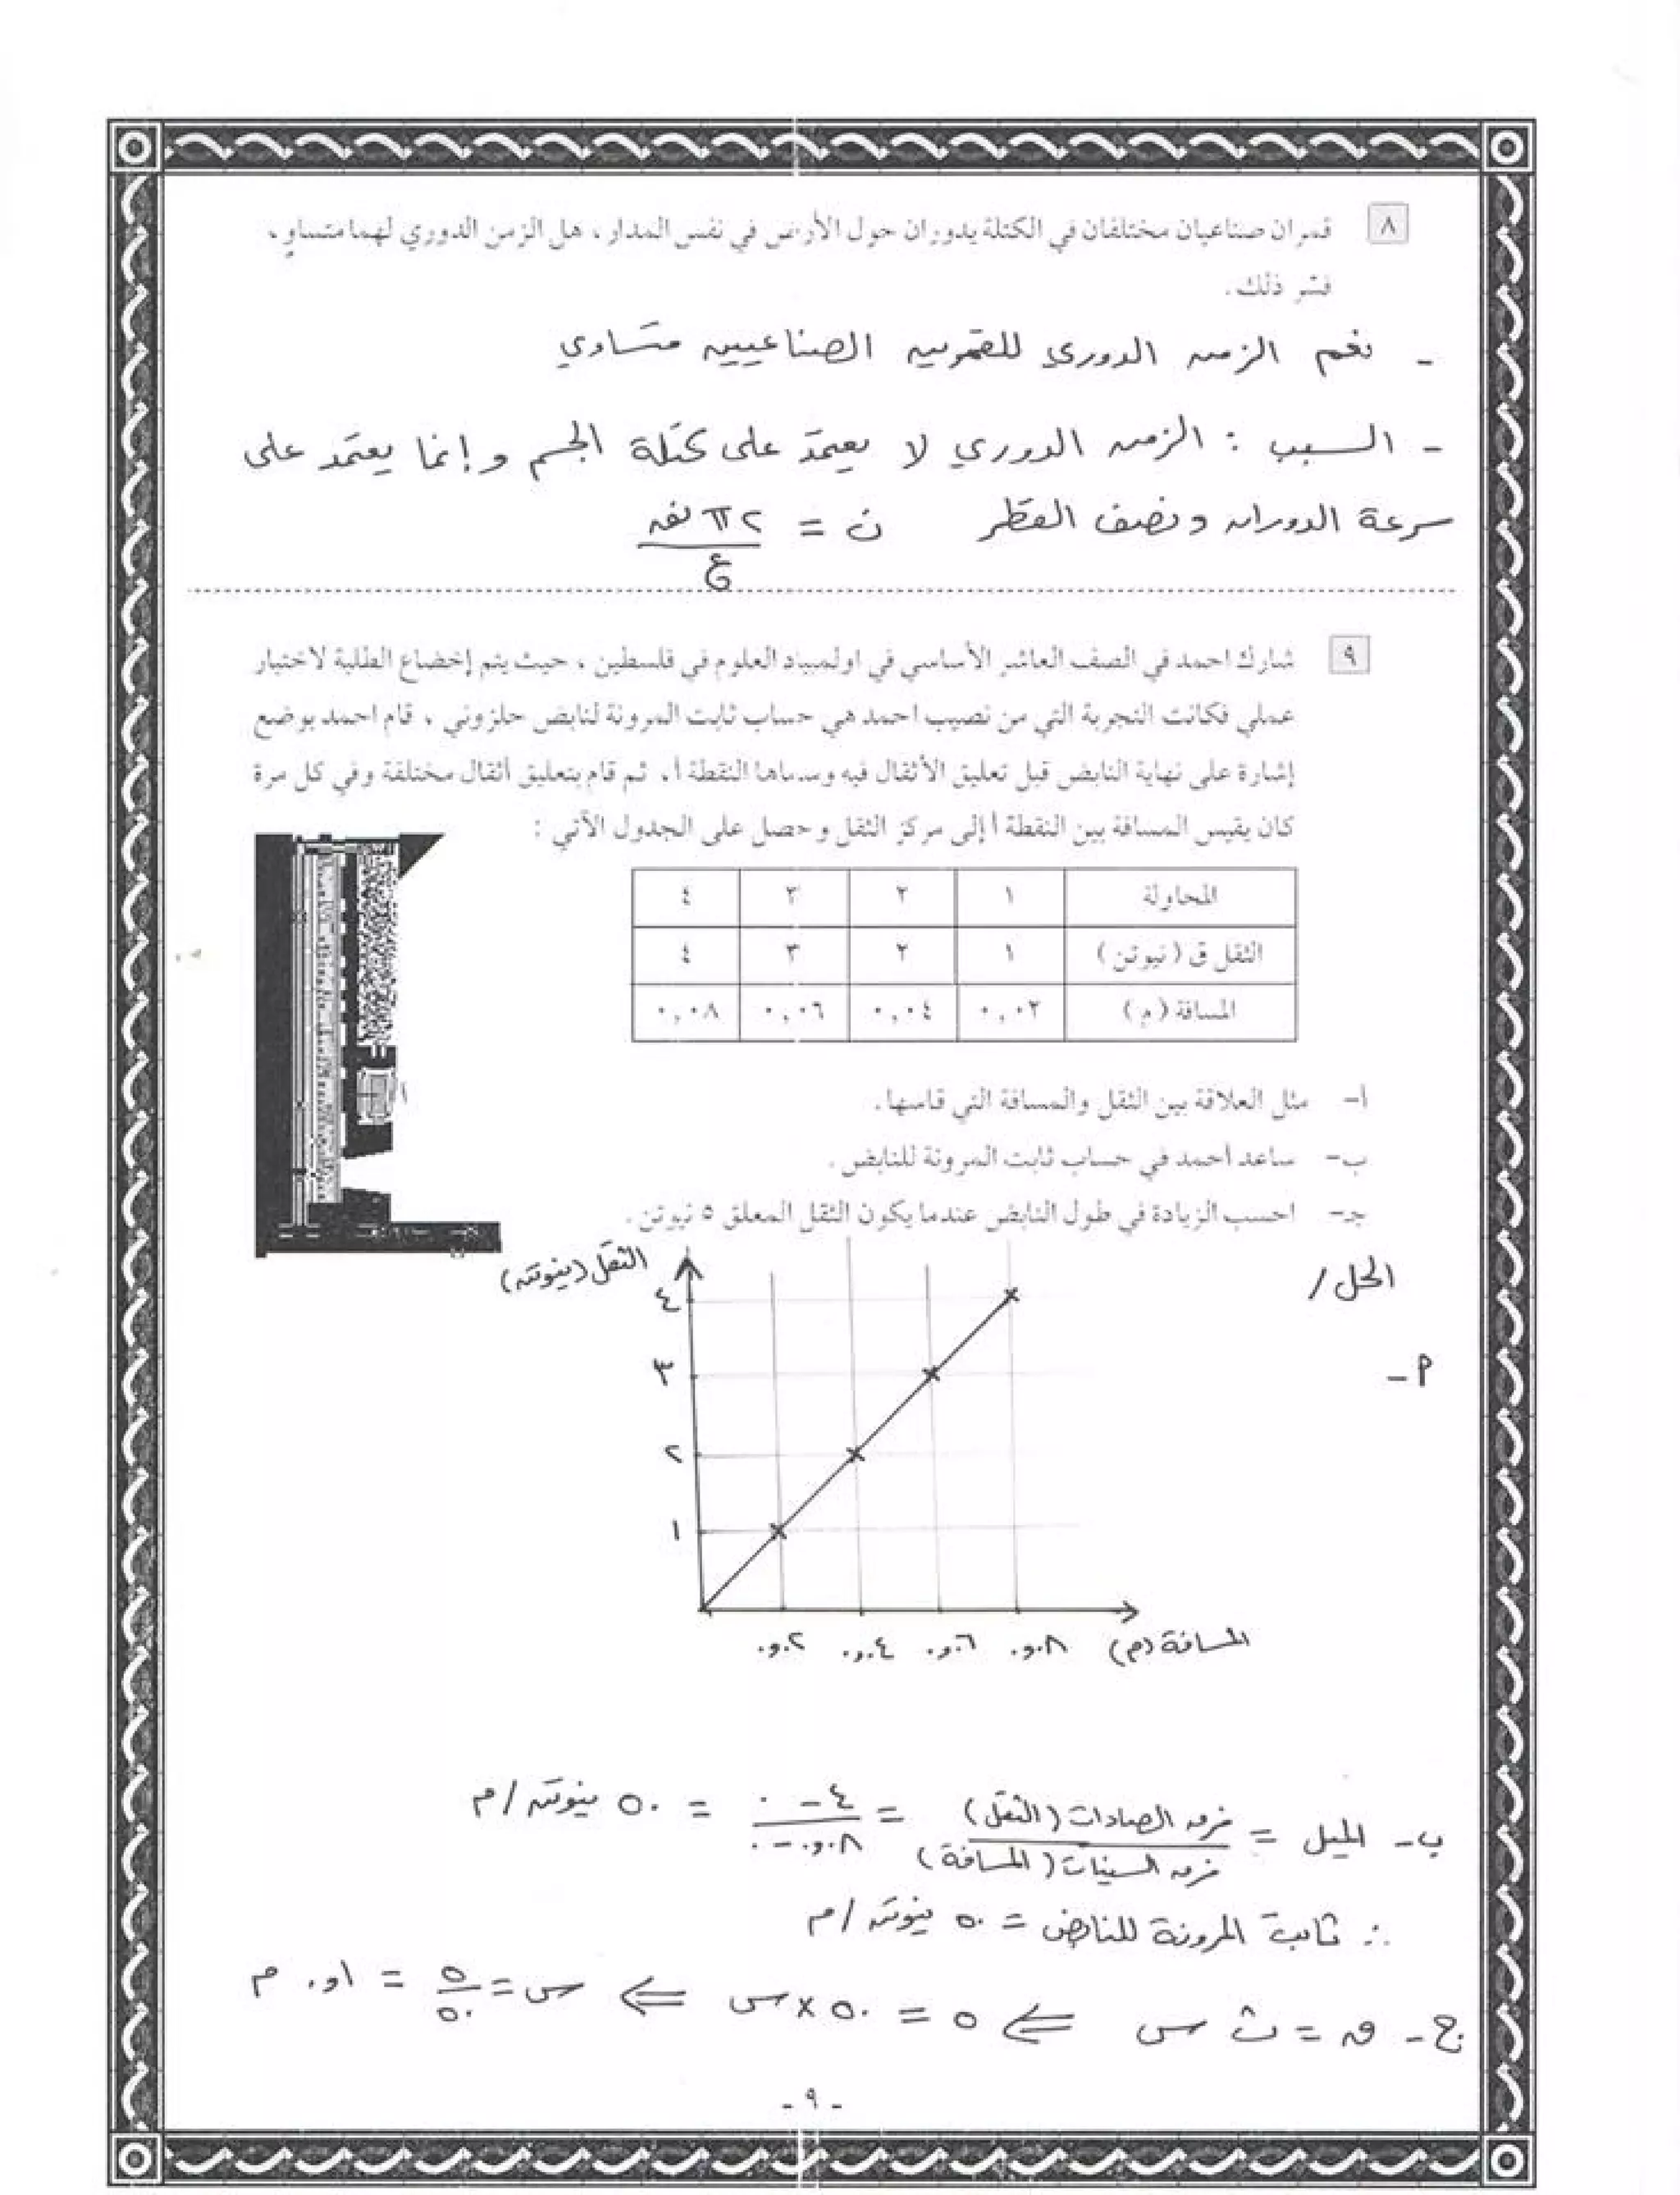 ٨ قمران صناعيان مختلفان في الكتلة يدوران حول الأرض في نفس المدار ، هل الزمن الدوري لهما متساوٍ ،
فسّر ذلك .
- نعم الزمن الدوري للقمرين الصناعيين متساوي
- السبب : الزمن الدوري لا يعتمد على كتلة الجسم وإنما يعتمد على
سرعة الدوران ونصف القطر ن = ٢ π نق / ع
٩ شارك احمد في الصف العاشر الأساسي في اولمبياد العلوم في فلسطين ، حيث يتم إخضاع الطلبة لاختبار
عملي فكانت التجربة التي من نصيب احمد هي حساب ثابت المرونة لنابض حلزوني ، قام احمد بوضع
إشارة على نهاية النابض قبل تعليق الأثقال فيه وسماها النقطة أ ، ثم قام بتعليق أثقال مختلفة وفي كل مرة
كان يقيس المسافة بين النقطة أ إلى مركز الثقل وحصل على الجدول الآتي :
المحاولة ١ ٢ ٣ ٤
الثقل ق (نيوتن) ١ ٢ ٣ ٤
المسافة (م) ٠,٠٢ ٠,٠٤ ٠,٠٦ ٠,٠٨
أ
أ- مثل العلاقة بين الثقل والمسافة التي قاسها .
ب- ساعد أحمد في حساب ثابت المرونة للنابض .
جـ- احسب الزيادة في طول النابض عندما يكون الثقل المعلق ٥ نيوتن .
الحل /
أ -
الثقل (نيوتن)
٤
٣
٢
١
٠,٠٢ ٠,٠٤ ٠,٠٦ ٠,٠٨ المسافة (م)
ب- الميل = فرق الصادات (الثقل) / فرق السينات (المسافة) = ٤ - ٠ / ٠,٠٨ - ٠ = ٥٠ نيوتن / م
∴ ثابت المرونة للنابض = ٥٠ نيوتن / م
ج- ق = ث س ⇐ ٥ = ٥٠ × س ⇐ س = ٥ / ٥٠ = ٠,١ م
- ٩ -